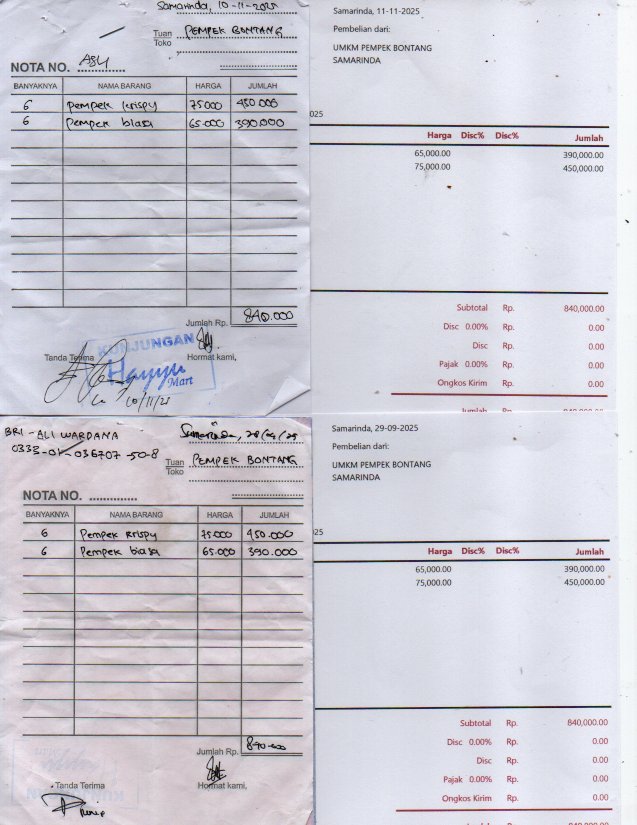 Samarinda, 10-11-2025
Tuan
Toko
PEMPEK BONTANG
NOTA NO.
BANYAKNYA NAMA BARANG HARGA JUMLAH
6 Pempek krispy 75000 450.000
6 Pempek biasa 65.000 390.000
Jumlah Rp. 840.000
KUNJUNGAN
Hayyu
Mart
Tanda Terima Hormat kami,
10/11/25
Samarinda, 11-11-2025
Pembelian dari:
UMKM PEMPEK BONTANG
SAMARINDA
025
Harga Disc% Disc% Jumlah
65,000.00 390,000.00
75,000.00 450,000.00
Subtotal Rp. 840,000.00
Disc 0.00% Rp. 0.00
Disc Rp. 0.00
Pajak 0.00% Rp. 0.00
Ongkos Kirim Rp. 0.00
Jumlah Rp. 840,000.00
BRI - ALI WARDANA
0333-01-036707-50-8
Samarinda,
Tuan
Toko
PEMPEK BONTANG
NOTA NO.
BANYAKNYA NAMA BARANG HARGA JUMLAH
6 Pempek krispy 75.000 450.000
6 Pempek biasa 65.000 390.000
Jumlah Rp.
Tanda Terima Hormat kami,
Samarinda, 29-09-2025
Pembelian dari:
UMKM PEMPEK BONTANG
SAMARINDA
025
Harga Disc% Disc% Jumlah
65,000.00 390,000.00
75,000.00 450,000.00
Subtotal Rp. 840,000.00
Disc 0.00% Rp. 0.00
Disc Rp. 0.00
Pajak 0.00% Rp. 0.00
Ongkos Kirim Rp. 0.00